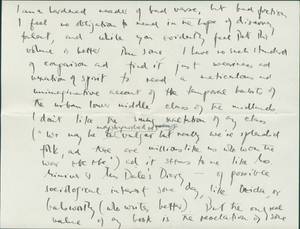 I am a hardened reader of bad verse, but bad fiction,
I feel no obligation to read in the hope of discovering
talent, and while you evidently feel that this
volume is better than some I have no such standard
of comparison and find it just weariness and
vexation of spirit to read a meticulous and
unimaginative account of the temporal habits of
the urban lower middle class of the midlands
I don't like the smug of my class
("We may be but really we're splendid
folk, and there are millions like us who won the
war ") and it seems to me like
Mrs Dale's Diary — of possible
sociological interest some day, like
(who writes better) But the only real
value of my book is the revelation of some